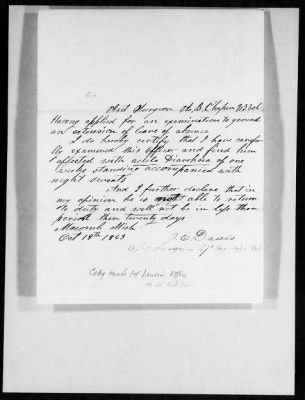 Asst Surgeon M. B. Chapin
Having applied for an examination to ground
an extension of leave of absence
I do hereby certify that I have carefu
lly examined this officer and find him
affected with acute Diarrhoea of one
weeks standing accompanied with
night sweats.
And I further declare that in
my opinion he is not able to return
to duty and will not be in less than
period than twenty days
Macomb Mich
Oct 18th 1863
E. Davis
Surgeon